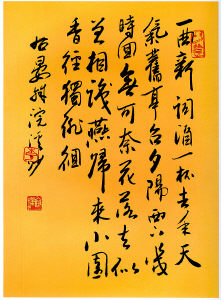 一曲新詞酒一杯去年天
氣舊亭台夕陽西下幾
時回無可奈花落去似
曾相識燕歸來小園
香徑獨徘徊
右晏殊浣溪沙